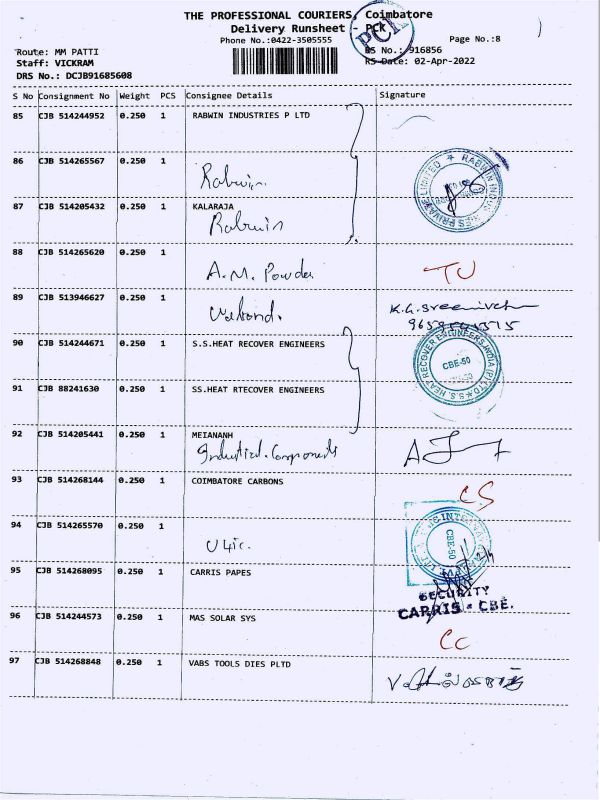 THE PROFESSIONAL COURIERS, Coimbatore
Delivery Runsheet - PCK
Phone No.:0422-3505555
Page No.:8
PCI
Route: MM PATTI
RS No.: 916856
Staff: VICKRAM
RS Date: 02-Apr-2022
DRS No.: DCJB91685608
S No Consignment No Weight PCS Consignee Details Signature
85 CJB 514244952 0.250 1 RABWIN INDUSTRIES P LTD
86 CJB 514265567 0.250 1
Rabwin.
RABWIN INDUSTRIES PRIVATE LIMITED
87 CJB 514205432 0.250 1 KALARAJA
Rabwin
88 CJB 514265620 0.250 1
A.M. Powder TU
89 CJB 513946627 0.250 1
K.G.
90 CJB 514244671 0.250 1 S.S.HEAT RECOVER ENGINEERS
S.S. HEAT RECOVER ENGINEERS INDIA (P) LTD
CBE-50
91 CJB 88241630 0.250 1 SS.HEAT RTECOVER ENGINEERS
92 CJB 514205441 0.250 1 MEIANANH
Industrial. Components
93 CJB 514268144 0.250 1 COIMBATORE CARBONS
CS
94 CJB 514265570 0.250 1
CBE-50
95 CJB 514268095 0.250 1 CARRIS PAPES
SECURITY
CARRIS - CBE.
96 CJB 514244573 0.250 1 MAS SOLAR SYS
CC
97 CJB 514268848 0.250 1 VABS TOOLS DIES PLTD